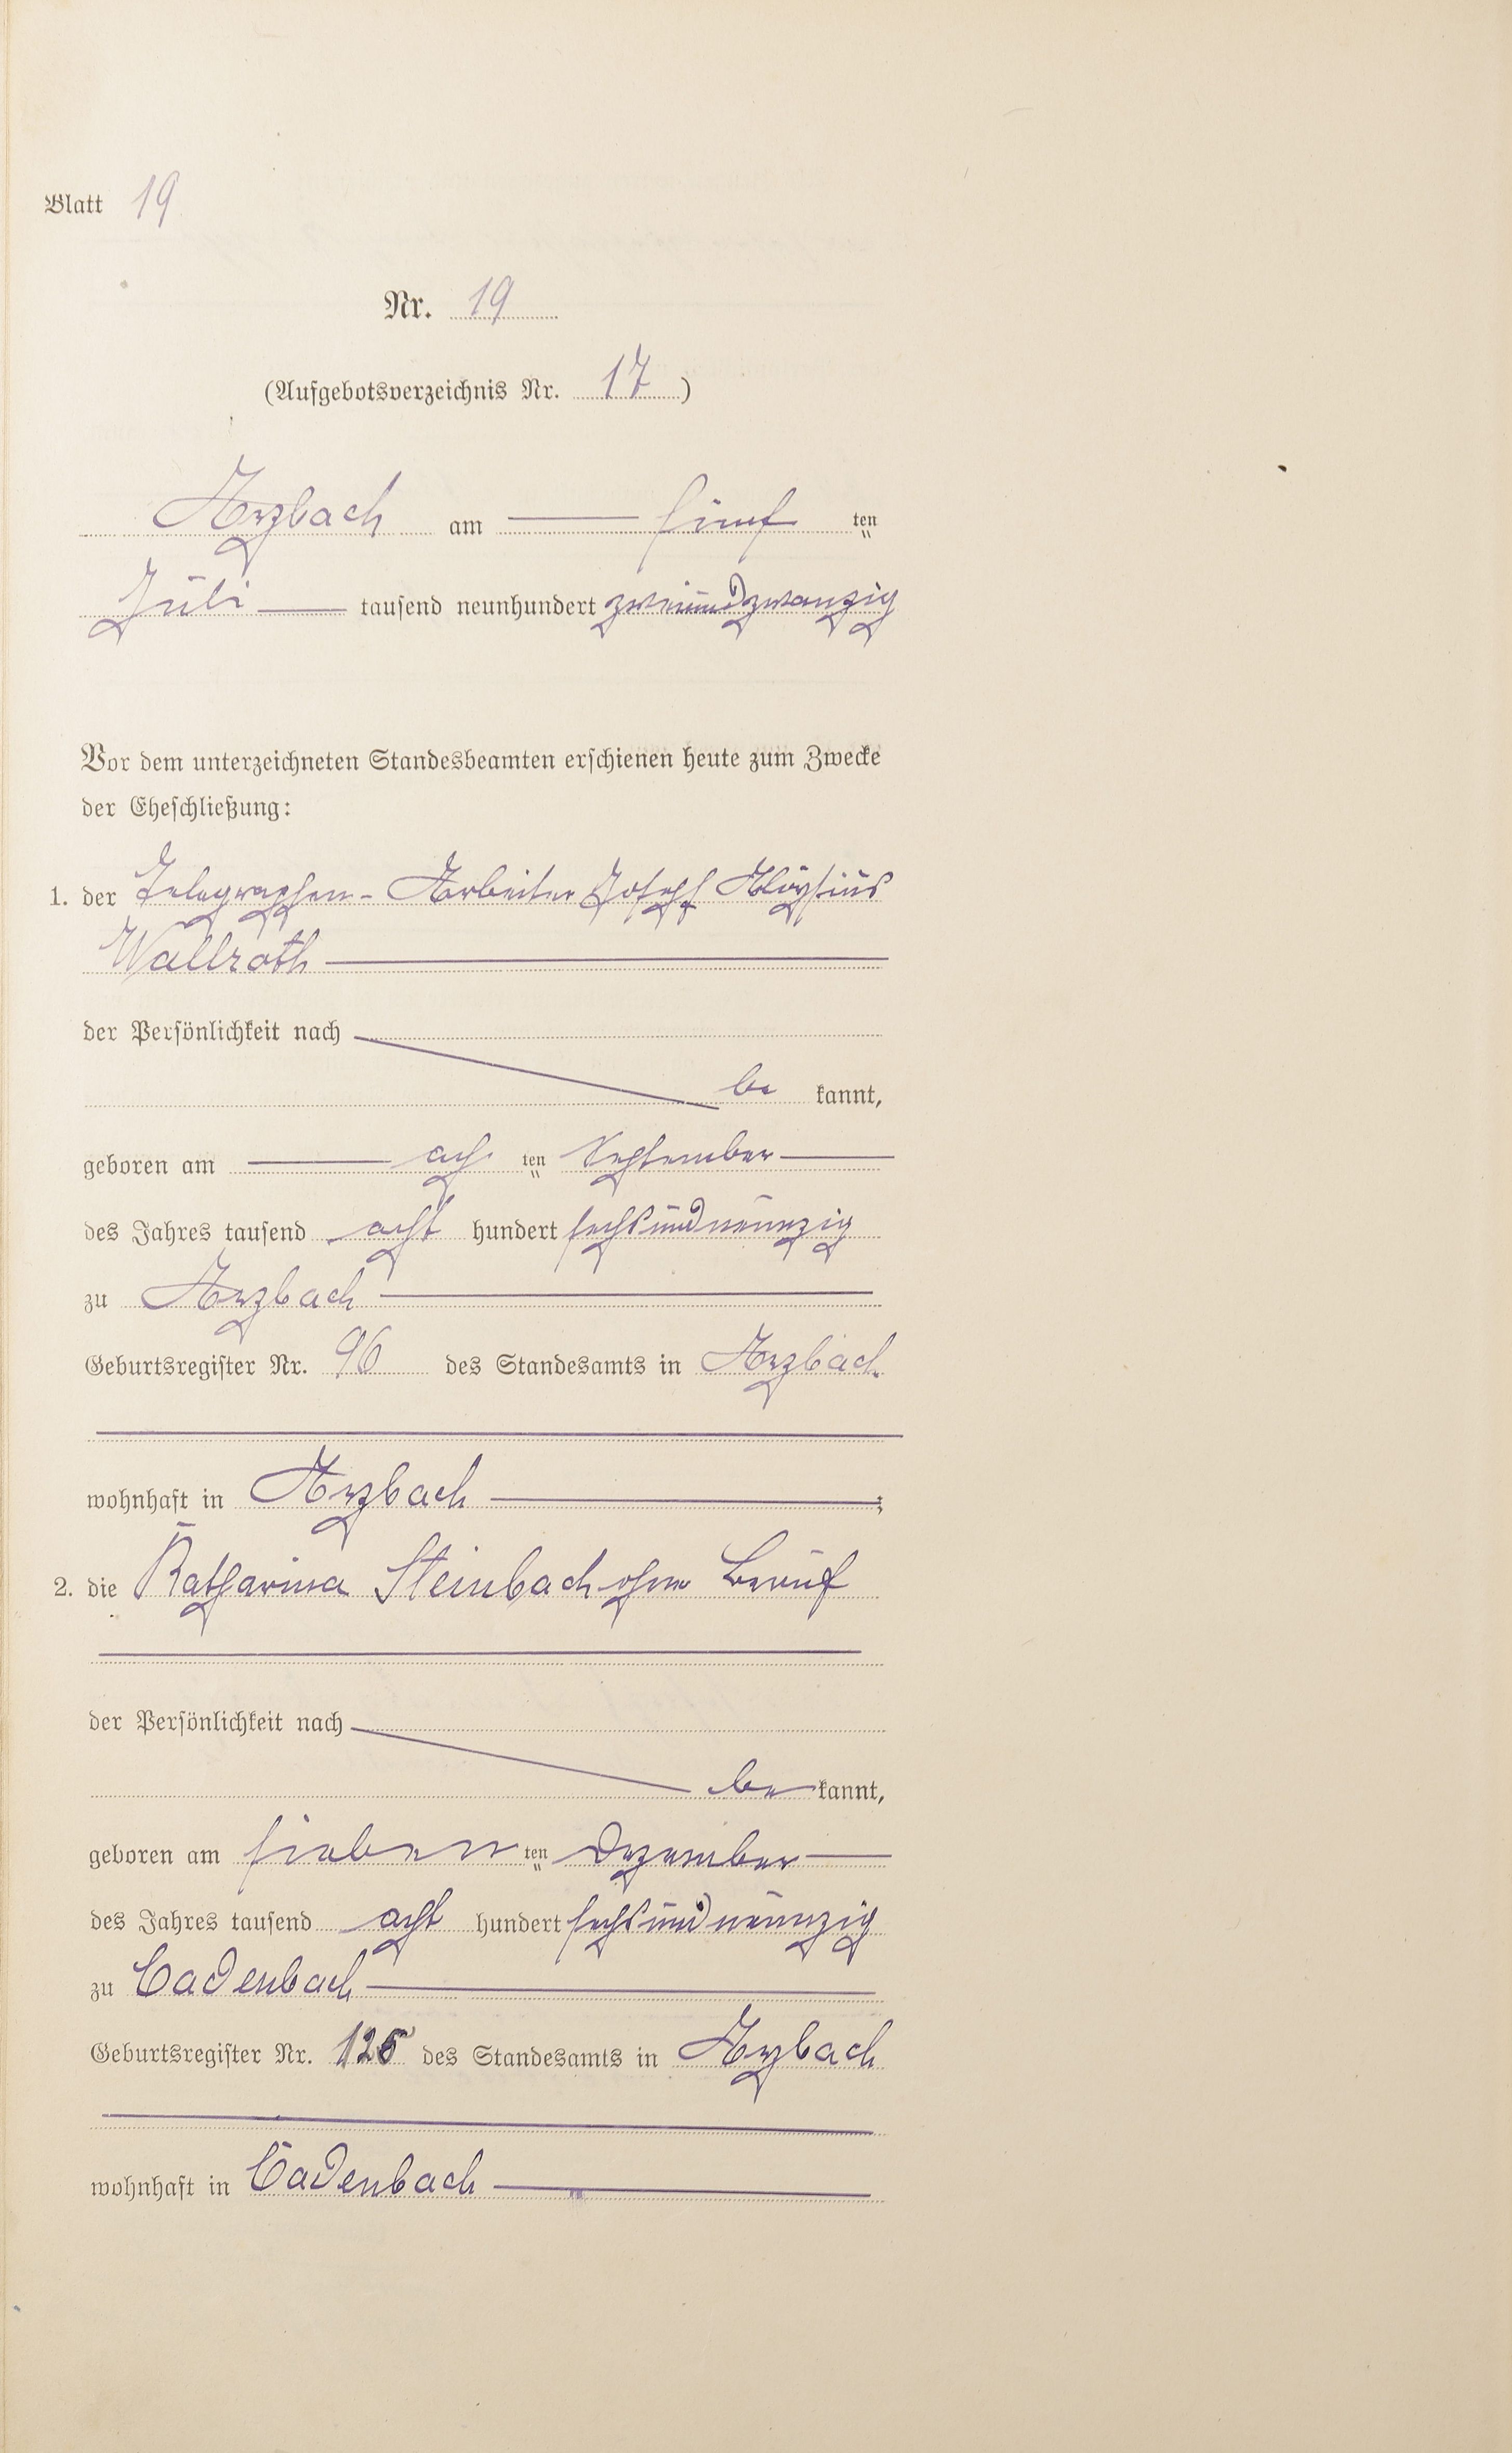 Blatt 19
Nr. 19
(Aufgebotsverzeichnis Nr. 17)
Arzbach am fünf ten
Juli tausend neunhundert zweiundzwanzig
Vor dem unterzeichneten Standesbeamten erschienen heute zum Zwecke
der Eheschließung:
1. der Telegraphen-Arbeiter Joseph Aloysius
Wallroth
der Persönlichkeit nach
be kannt,
geboren am ach ten September
des Jahres tausend acht hundert sechsundneunzig
zu Arzbach
Geburtsregister Nr. 96 des Standesamts in Arzbach
wohnhaft in Arzbach ;
2. die Katharina Steinbach ohne Beruf
der Persönlichkeit nach
be kannt,
geboren am sieben ten Dezember
des Jahres tausend acht hundert sechsundneunzig
zu Cadenbach
Geburtsregister Nr. 125 des Standesamts in Arzbach
wohnhaft in Cadenbach